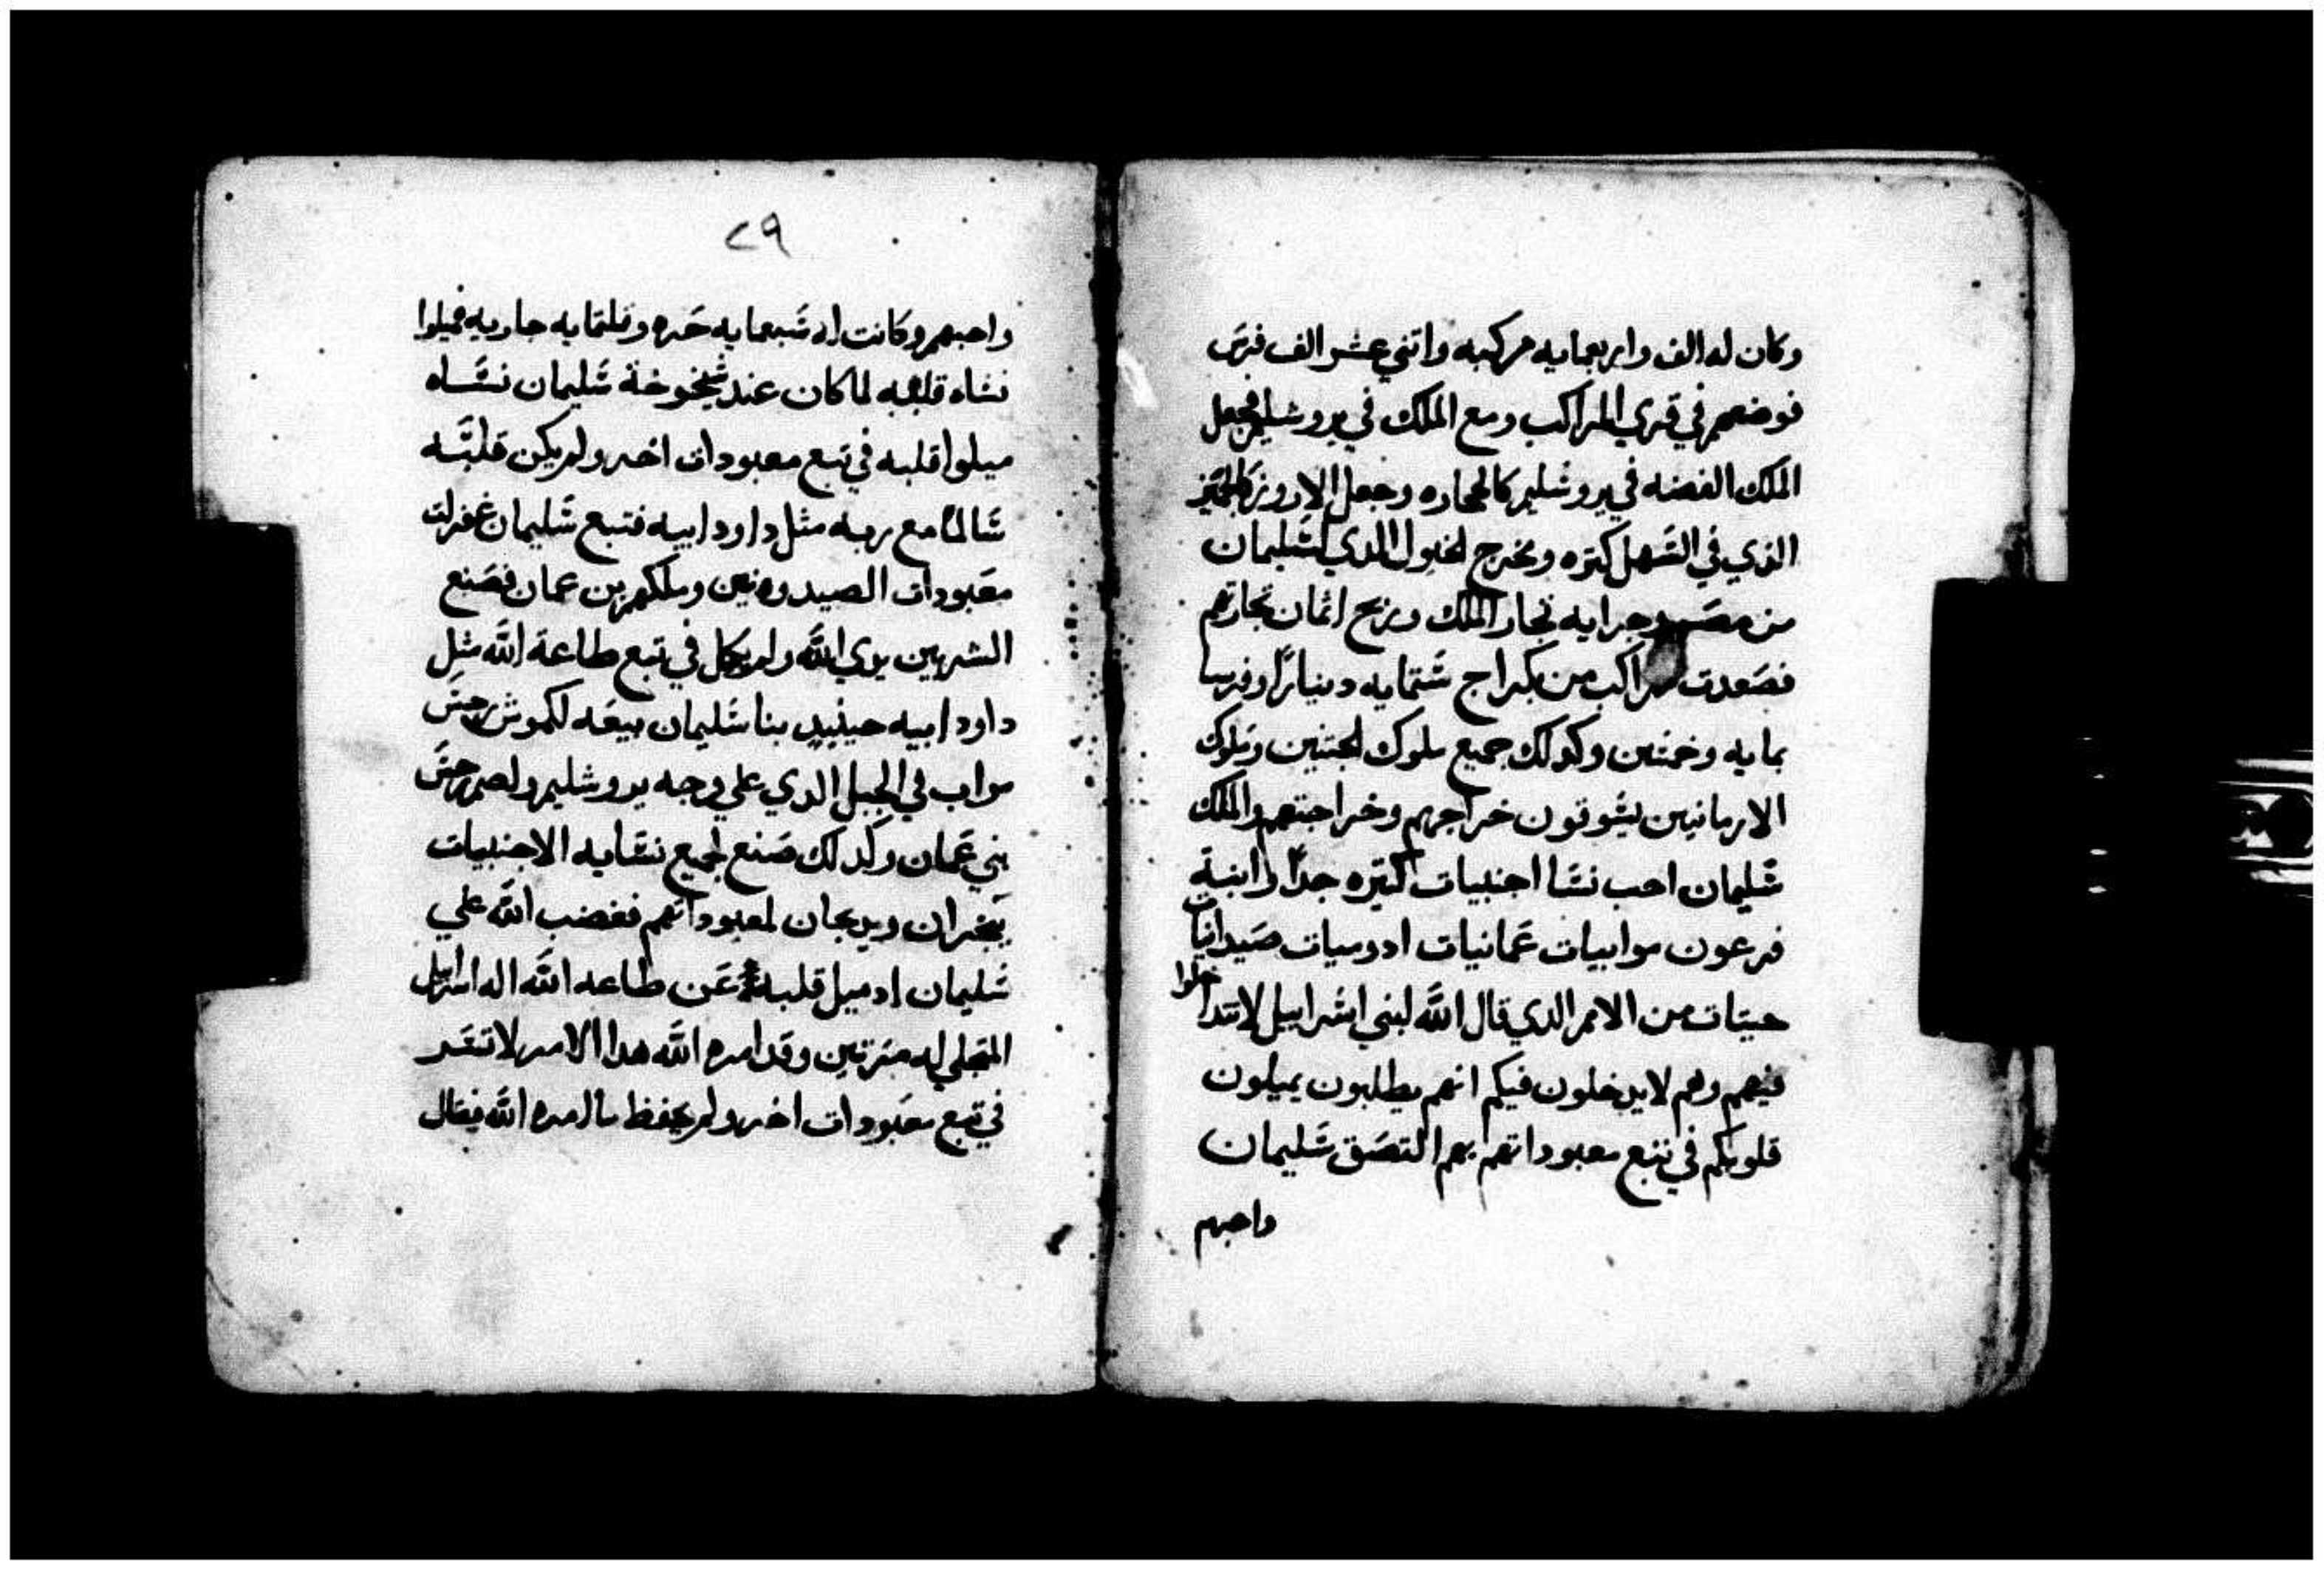 وكان له الف واربعمايه مركبه واتني عشر الف فرس
فوضعهم في قري المراكب ومع الملك في يروشليم فجعل
الملك الفضه في يروشليم كالحجاره وجعل الارو زكالجميز
الذي في السهل كتره ويخرج الخيول الدي لسليمان
من وجرايه تجار الملك وربح اثمان تجارتهم
فصعدت مراكب من بكراج ستمايه دينارًا وفرسا
بمايه وخمسين وكدلك جميع ملوك الجتنين وملوك
الارمانيين يسوقون خراجهم وخراجتهم والملك
سليمان احب نسا اجنبيات كتيره جدًا وابنة
فرعون موابيات عمانيات ادوميات صيدانيات
حيتات من الامر الدي قال الله لبني اسراييل لا تتداخلوا
فيهم وهم لا يدخلون فيكم انهم يطلبون يميلون
قلوبكم في تتبع معبوداتهم بهم التصق سليمان
واحبهم
٢٩
واحبهم وكانت له سبعمايه حره وتلتمايه جاريه فميلوا
نساه قلبه لما كان عند شيخوخة سليمان نساه
ميلوا قلبه في تبع معبودات اخر ولم يكن قلبه
سالمًا مع ربه مثل داود ابيه فتبع سليمان غفرلت
معبودات الصيدونين وملكهم بن عمان فصنع
الشر بين يدي الله ولم يكمل في تبع طاعة الله مثل
داود ابيه حينيد بنا سليمان بيعه لكموش رجس
مواب في الجبل الدي علي وجه يروشليم ولصمر رجس
بني عمان وكدلك صنع لجميع نسايه الاجنبيات
يبخران ويدبحان لمعبوداتهم فغضب الله علي
سليمان اد ميل قلبه عن طاعه الله اله اسراييل
المتجلي له مترتين وقد امره الله هدا الامر لا تسر
في تبع معبودات اخر ولم يحفظ ما امره الله فقال